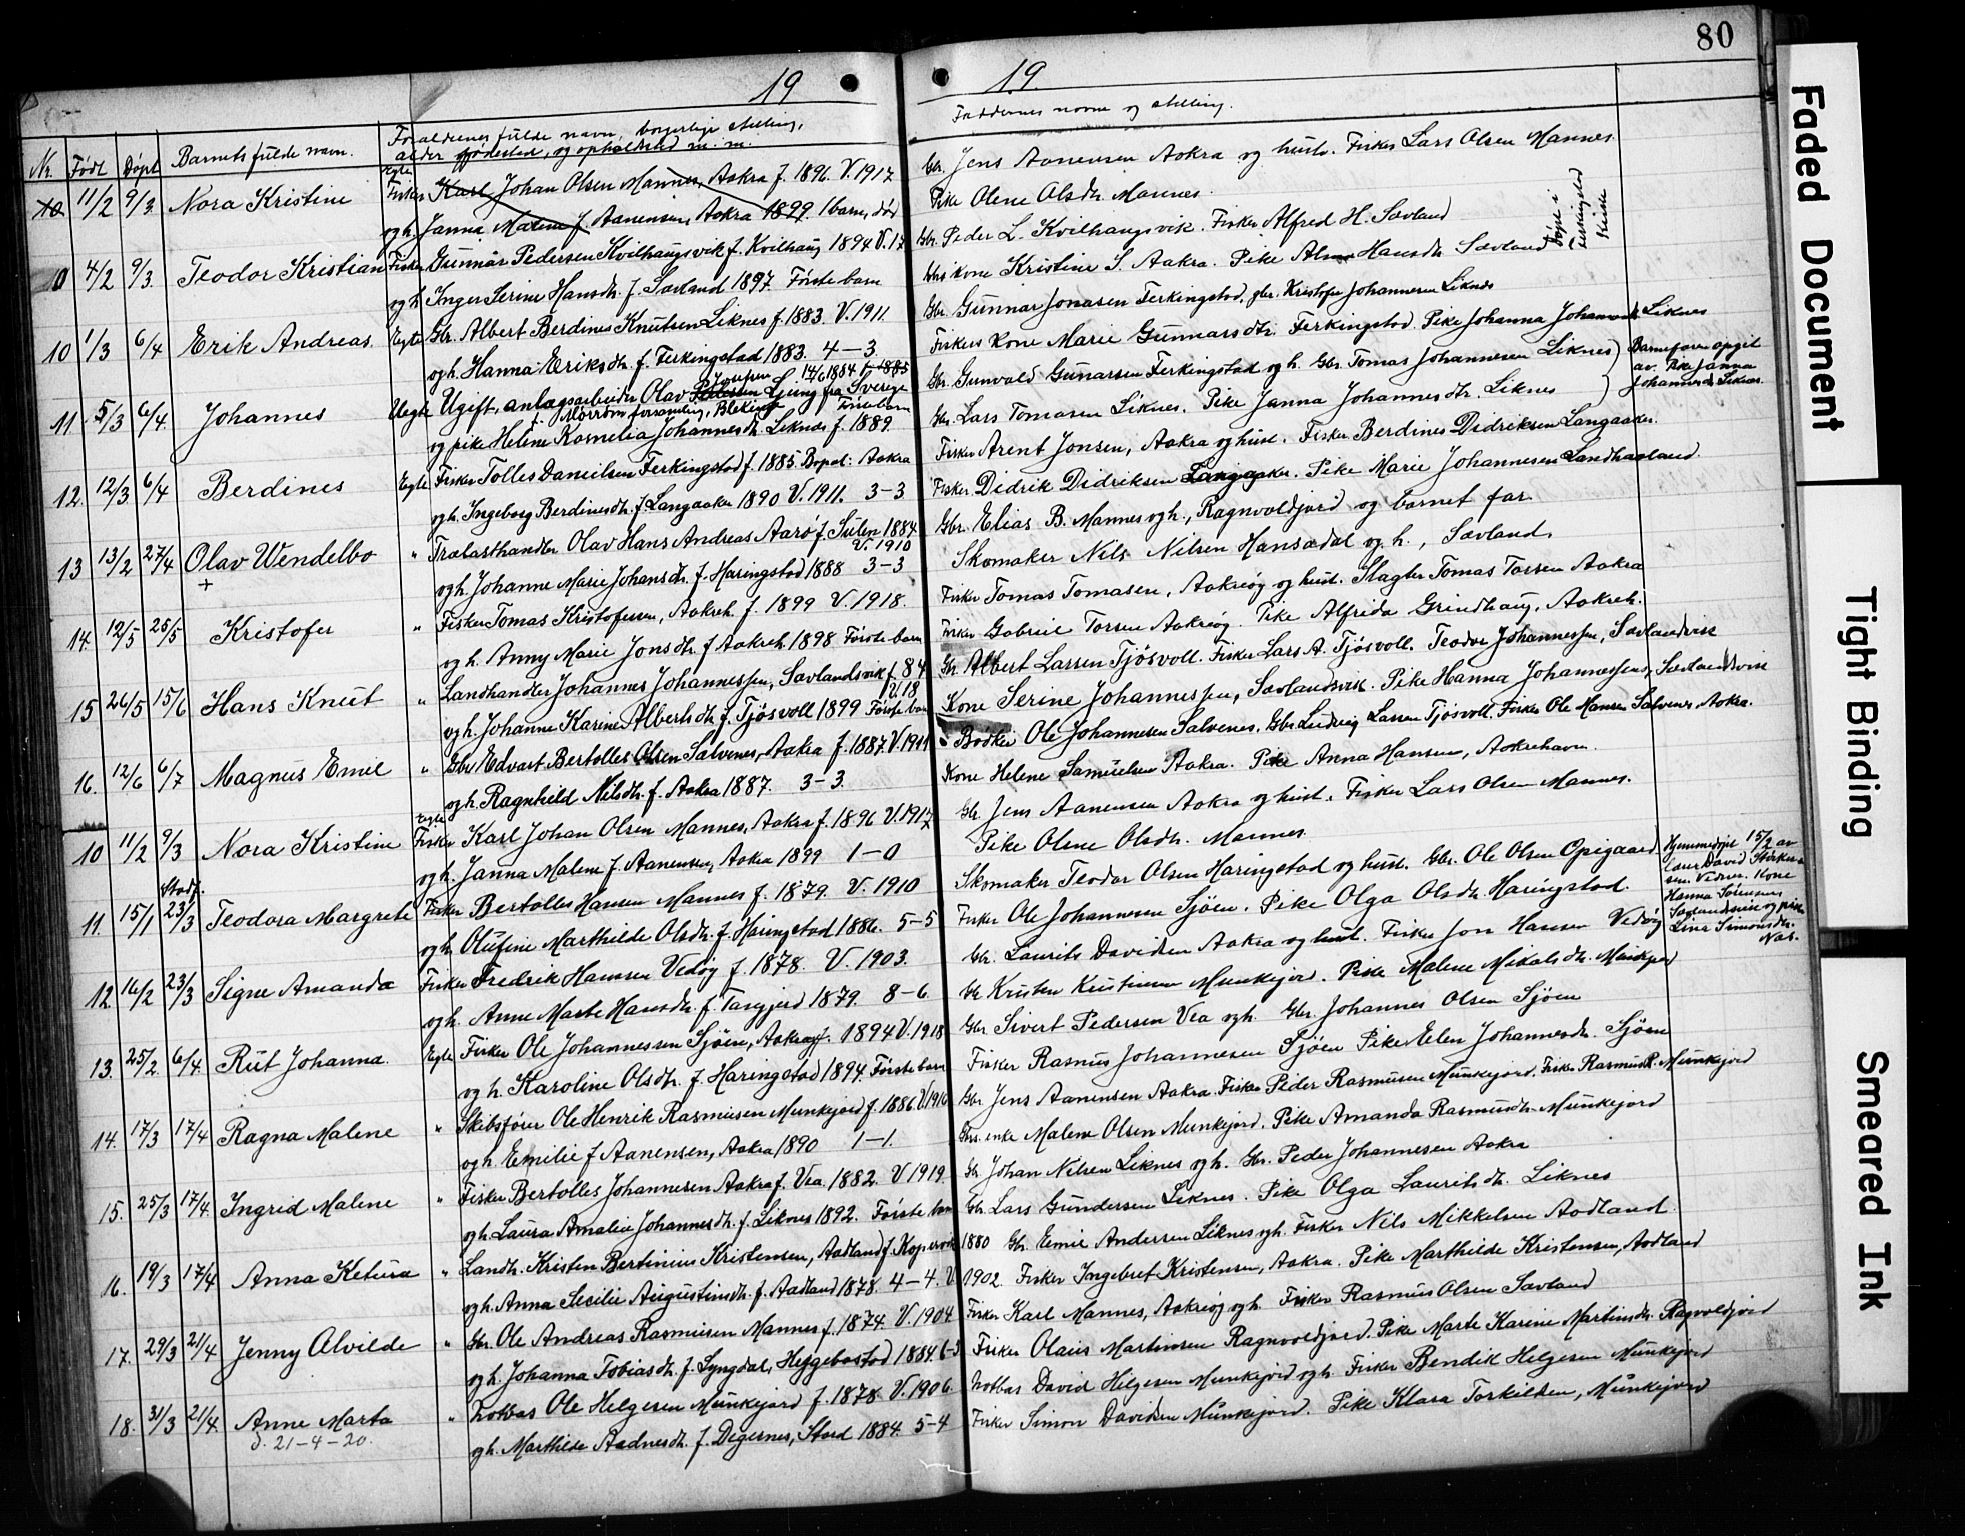 80
19 19.
Nr. Født Døpt Barnets fulde navn. Forældrenes fulde navn, borgerlige stilling, alder fødested, og opholdsted m. m. Faddernes navne og stilling.
10 11/2 9/3 Nora Kristine Egte Fisker Karl Johan Olsen Mannes, Aakra f. 1896. V. 1917 Gbr. Jens Aanensen Aakra og hustr. Fisker Lars Olsen Mannes.
og h. Janna Malene f. Aanensen, Aakra 1899 1 barn, død Pike Olene Olsdtr. Mannes.
0 4/2 9/3. Teodor Kristian Fisker Gunnar Pedersen Kvilhaugsvik f. Kvilhaug 1894 V. 17 Gbr. Peder L. Kvilhaugsvik. Fisker Alfred H. Sævland
og h. Inger Serine Hansdtr. f. Sævland 1897 Første barn Gbrs kone Kristine S. Aakra. Pike Alma Hansdtr Sævland Døpt i Ferkingstad kirke
10 1/3 6/4 Erik Andreas. Egte Gbr. Albert Berdines Knutsen Liknes f. 1883. V. 1911 Gbr. Gunnar Jonasen Ferkingstad, gbr. Kristofer Johannesen Liknes
og h. Hanna Eriksdtr. f. Ferkingstad 1883. 4-3 Fiskers kone Marie Gunnarsdtr. Ferkingstad. Pike Johanna Johannesdtr. Liknes
11 5/3 6/4. Johannes Uegte Ugift, anlægsarbeider Olav Josefsen Ljung fra Sverige 14/6 1884 Gbr. Gunvald Gunarsen Ferkingstad og h. Gbr. Tomas Johannesen Liknes Barnefaren opgit
f. Mörrum forsamling, Blekinge Første barn av. Pike Janna
og pike Helene Kornelia Johannesdtr. Liknes f. 1889. Gbr. Lars Tomasen Liknes. Pike Janna Johannesdtr. Liknes Johannesdtr. Liknes.
12. 12/3 6/4 Berdines Egte Fisker Tolles Danielsen Ferkingstad f. 1885. Bopæl: Aakra Fisker Arent Jonsen, Aakra og hust. Fisker Berdines Didriksen Langaaker.
og h. Ingeborg Berdinesdtr. f. Langaaker 1890 V. 1911. 3-3 Fisker Didrik Didriksen Langaaker. Pike Marie Johannesen Sandhaaland
13 13/2 27/4 Olav Wendelbo " Trælasthandler Olav Hans Andreas Aarø f. Sulen 1884 Gbr. Elias B. Mannes og h., Ragnvaldjord og barnet far.
+ V. 1910
og h. Johanne Marie Johansdtr. f. Haringstad 1888 3-3 Skomaker Nils Nilsen Hansædal og h., Sævland.
14. 12/5 25/5 Kristofer " Fisker Tomas Kristofersen, Aakreh. f. 1899 V. 1918. Fisker Tomas Tomasen, Aakreøg og hust. Slagter Tomas Torsen Aakra
og h. Anny Marie Jonsdtr. f Aakreh. 1898 Første barn Fisker Gabriel Torsen Aakreøg. Pike Alfrida Grindhaug, Aakreh.
15 26/5 15/6 Hans Knut " Landhandler Johannes Johannessen, Sævlandsvik f. 84 Gbr. Albert Larsen Tjøsvoll. Fisker Lars A. Tjøsvoll. Teodor Johannessen, Sævlandsvik
V. 18
og h. Johanne Karine Albertsdtr. f. Tjøsvoll 1899 Første barn Kone Serine Johannessen, Sævlandsvik. Pike Hanna Johannessen, Sævlandsvik
16. 12/6 6/7 Magnus Emil " Gbr. Edvart Bertolles Olsen Salvenes, Aakra f. 1887. V. 1911 Bødker Ole Johannesen Salvenes. Gbr. Ludvig Larsen Tjøsvoll. Fisker Ole Hansen Salvenes Aakra.
og h. Ragnhild Nilsdtr. f. Aakra 1887. 3-3. Kone Helene Samuelsen Aakra. Pike Anna Hansen, Aakrehavn.
10 11/2 9/3 Nora Kristine Egte Fisker Karl Johan Olsen Mannes, Aakra f. 1896 V. 1917 Gbr. Jens Aanensen Aakra og hust. Fisker Lars Olsen Mannes.
og h. Janna Malene f. Aanensen, Aakra 1899 1-0 Pike Olene Olsdtr. Mannes.
11. 15/1 Stadf. 23/3 Teodora Margrete Fisker Bertolles Hansen Mannes f. 1879. V. 1910 Skomaker Teodor Olsen Haringstad og hust. Gbr. Ole Olsen Opigaard Hjemmedøpt 15/2 av
lærer David
sen. Vidner. Kone
og h. Olufine Marthilde Olsdtr. f. Haringstad 1886. 5-5 Fisker Ole Johannesen Sjøen. Pike Olga Olsdtr. Haringstad. Hanna Sørensen
Sævlandsvik og pike
12. 16/2 23/3 Signe Amanda Fisker Fredrik Hansen Vedøy f. 1878. V. 1903. Gbr. Laurits Davidsen Aakra og hust. Fisker Jon Hansen Vedøy Lina Simonsdtr.
og h. Anne Marte Hansdtr. f. Tangjerd 1879. 8-6. Gbr. Kristen Kristensen Munkejor. Pike Malene Mikalsdtr. Munkejord
13. 25/2. 6/4. Rut Johanna Egte Fisker Ole Johannessen Sjøen, Aakra f. 1894 V. 1918 Gbr. Sivert Pedersen Vea og h. Gbr. Johannes Olsen Sjøen
og h. Karoline Olsdtr. f. Haringstad 1894. Første barn Fisker Rasmus Johannesen Sjøen Pike Elen Johannesdtr. Sjøen
14. 17/3 17/4 Ragna Malene " Skibsfører Ole Henrik Rasmusen Munkejord f. 1886. V. 1916 Gbr. Jens Aanensen Aakra. Fisker Peder Rasmusen Munkejord. Fisker Rasmus R. Munkejord
og h. Emilie f Aanensen, Aakra 1890 1-1. Gbrs. enke Malene Olsen Munkejord. Pike Amanda Rasmusdtr. Munkejord
15. 25/3 17/4. Ingrid Malene " Fisker Bertolles Johannesen Aakra f. Vea 1882. V 1919. Gbr. Johan Nilsen Liknes og h. Gbr. Peder Johannesen Aakra
og h. Laura Amalie Johannesdtr. f. Liknes 1892. Første barn Gbr. Lars Gundersen Liknes. Pike Olga Lauritsdtr. Liknes
16. 19/3 17/4 Anna Ketura " Landh. Kristen Bertinius Kristensen, Aadland f. Kopervik 1880 Gbr. Emil Andersen Liknes og h. Fisker Nils Mikkelsen Aadland
og h. Anna Secilie Augustinsdtr. f. Aadland 1878. 4-4. V. 1902 Fisker Ingebret Kristensen, Aakra. Pike Marthilde Kristensen, Aadland
17. 29/3 21/4 Jenny Alvilde " Gbr. Ole Andreas Rasmusen Mannes f. 1874. V. 1904 Fisker Karl Mannes, Aakreøg og h. Fisker Rasmus Olsen Sævland
og h. Johanna Tobiasdtr. f. Lyngdal, Hæggebostad 1884. 6-5 Fisker Olaus Martinsen Ragnvaldjord. Pike Marte Karine Martinsdtr. Ragnvaldjord
18. 31/3 21/4. Anne Marta " Notbas Ole Helgesen Munkejord f. 1878 V. 1906. Notbas David Helgesen Munkejord og h. Fisker Bendik Helgesen Munkejord
d. 21-4-20. og h. Marthilde Aadnesdtr. f. Degernes, Stord 1884. 5-4 Fisker Simon Davidsen Munkejord. Pike Klara Torkildsen, Munkejord
Faded Document
Tight Binding
Smeared Ink